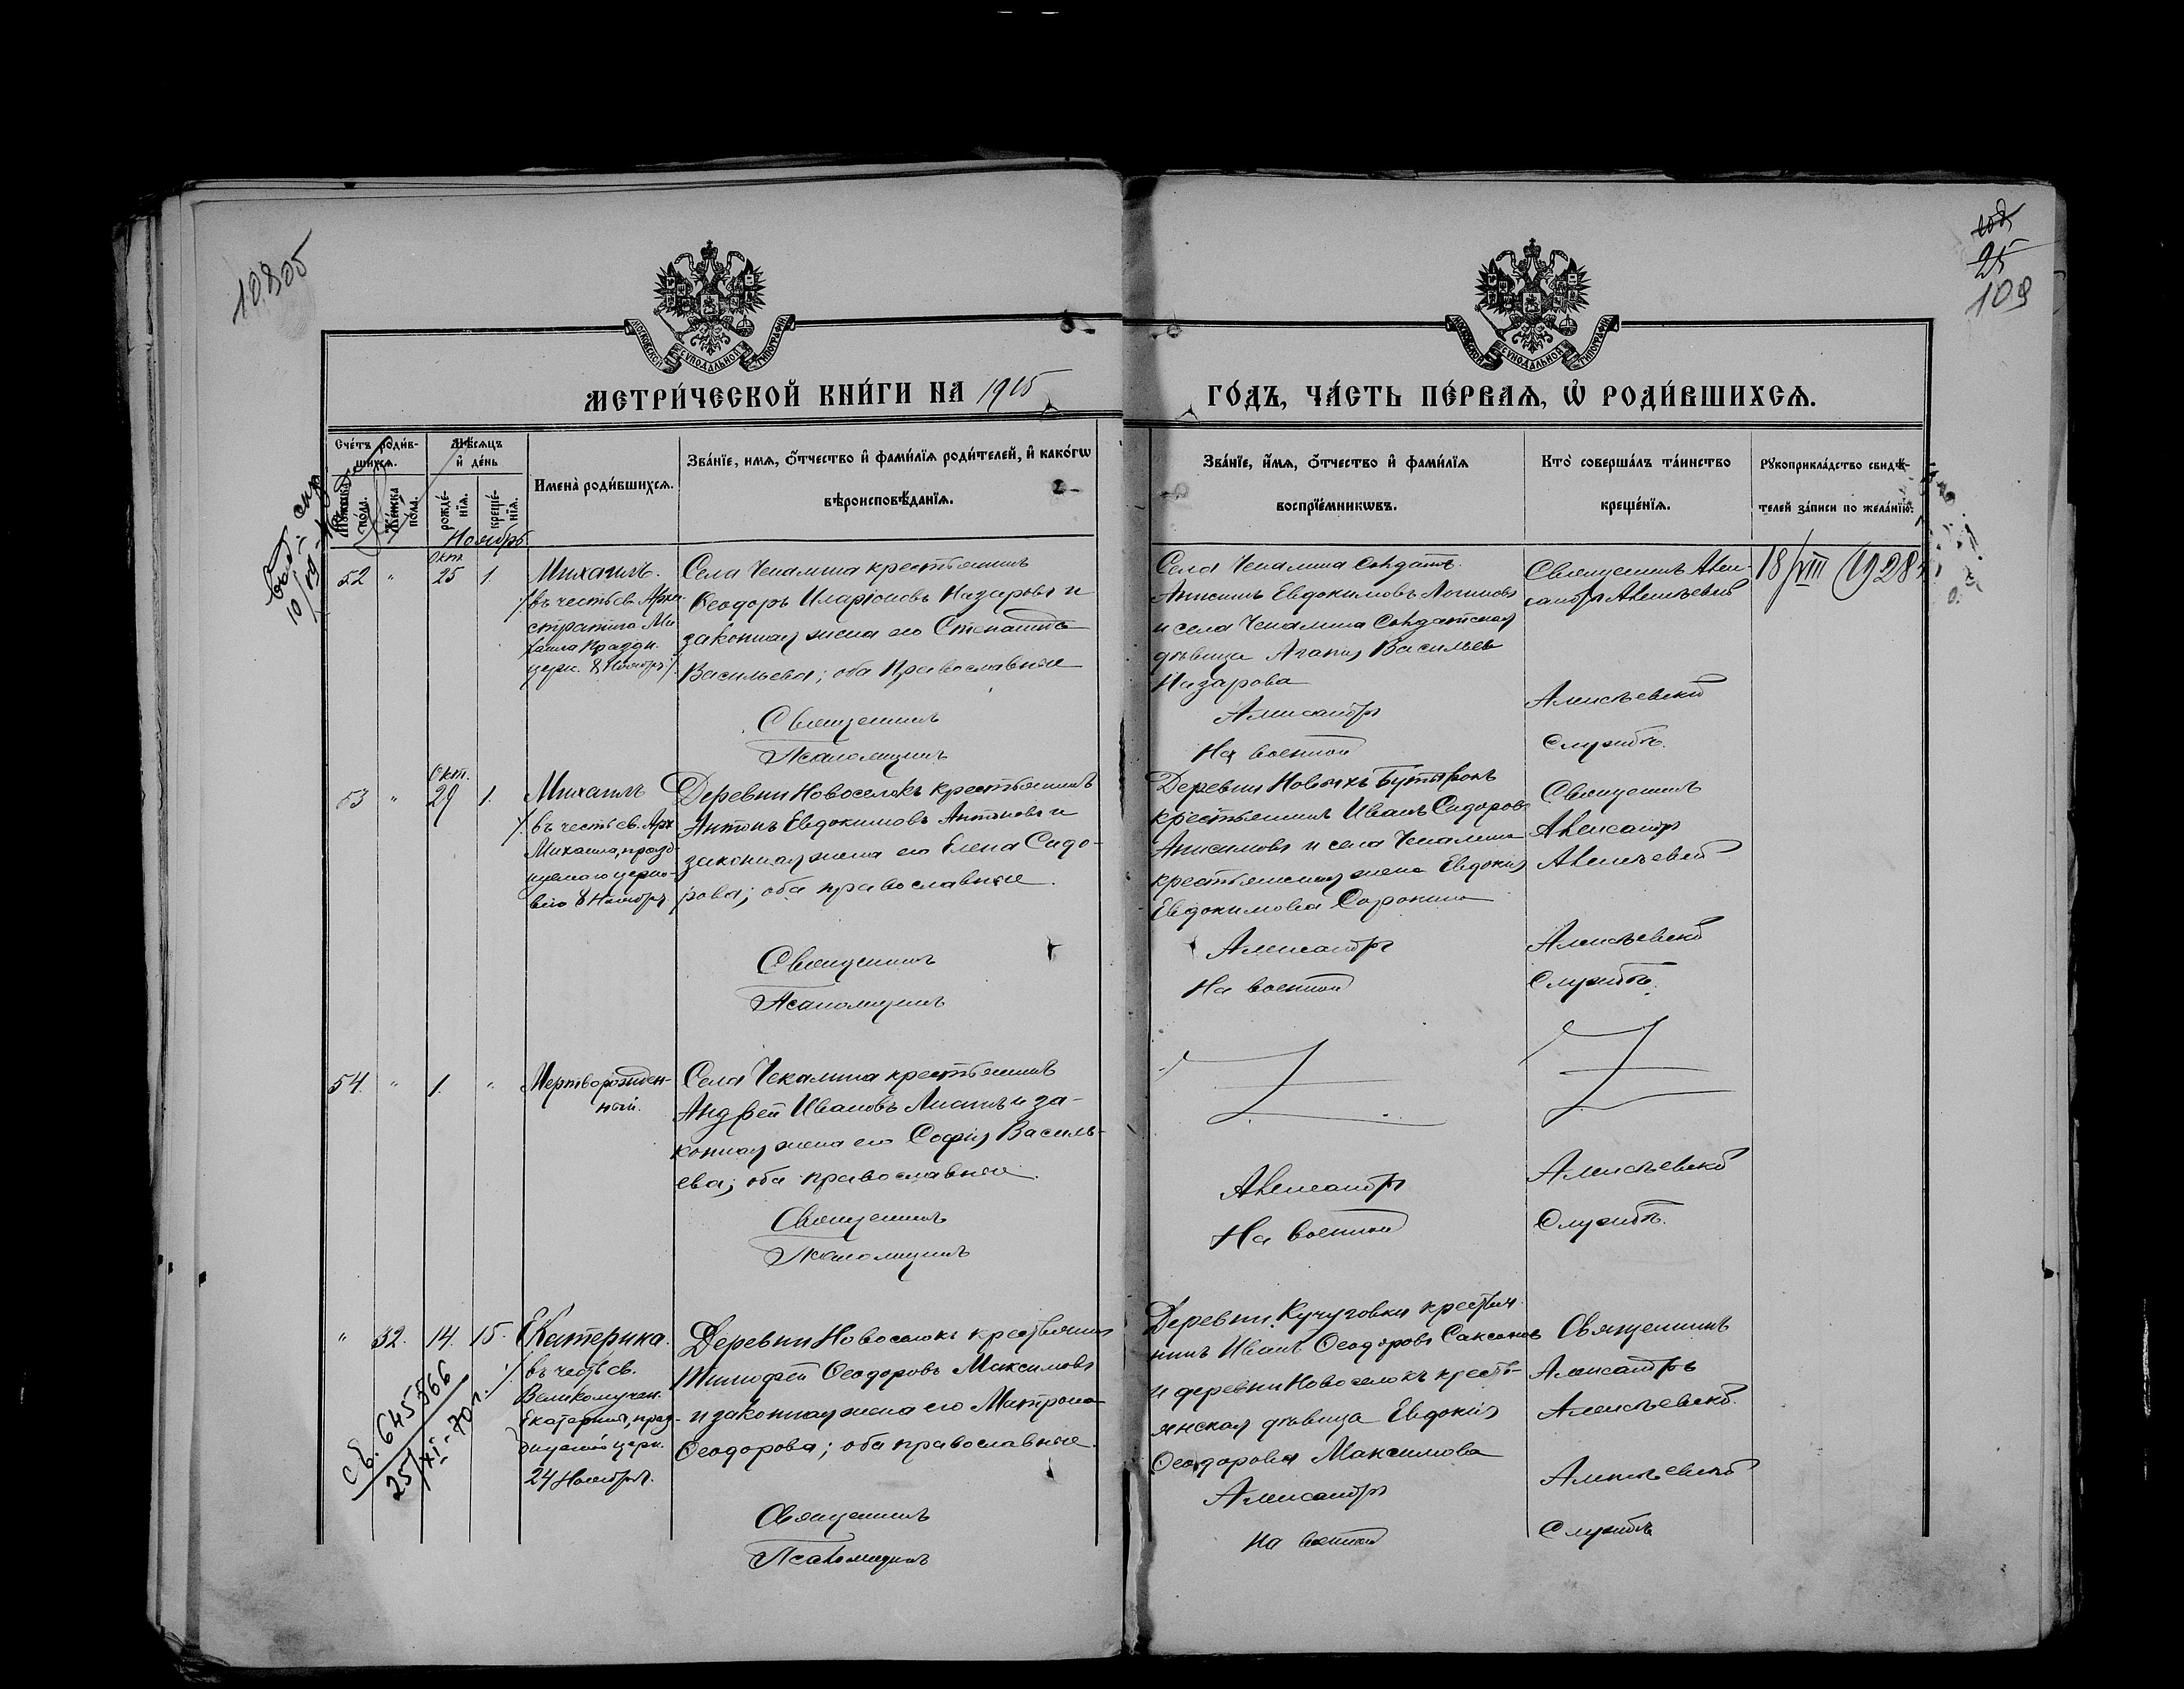 10805
25
109
МОСКОВСКОЙ СѴНОДАЛЬНОЙ ТИПОГРАФІИ
МОСКОВСКОЙ СѴНОДАЛЬНОЙ ТИПОГРАФІИ
МЕТРИ́ЧЕСКОЙ КНИ́ГИ НА 1915
ГО́ДЪ, ЧА́СТЬ ПЕ́РВАѦ, Ѡ҆ РОДИ́ВШИХСѦ.
Сче́тъ роди́в-
шихсѧ.
Мѣ́сѧцъ
и҆ де́нь
Мꙋжеска по́ла.
Же́нска по́ла.
рожде́-
нїѧ.
креще́-
нїѧ.
Имена̀ роди́вшихсѧ.
Зва́нїе, имѧ, ѻ҆́тчество и҆ фами́лїѧ роди́телей, и҆ како́гѡ
вѣроисповѣ́данїѧ.
Зва́нїе, и҆́мѧ, ѻ҆́тчество и҆ фами́лїѧ
воспрїе́мникѡвъ.
Кто̀ соверша́лъ та́инство
креще́нїѧ.
Рꙋкоприкла́дство свидѣ́-
телей за́писи по жела́нїю.
Ноябрь
Окт
52 " 25 1.
Михаилъ.
въ честь св. Архи-
стратига Ми
хаила праздн.
церк. 8 Ноября
Села Чекалина крестьянинъ
Ѳеодоръ Иларіоновъ Назаровъ и
законная жена его
Васильева; оба Православные
Священникъ
Псаломщикъ
Села Чекалина Солдатъ
Евдокимовъ
и села Чекалина Солдатская
дѣвица Агапія Васильева
Назарова
Александръ
На военной
Священникъ Алек-
сандръ Алексѣевскій
Алексѣевскій
Службѣ.
18/VIII 1928
Окт.
53 " 29 1.
Михаилъ
въ честь св. Арх
Михаила, празд-
нуемаго церко-
вію 8 Ноября
Деревни Новоселокъ крестьянинъ
Антонъ Евдокимовъ Антоновъ и
законная жена его Елена Сидо-
рова; оба православные.
Священникъ
Псаломщикъ
Деревни Новыхъ Бутырокъ
крестьянинъ Иванъ Сидоровъ
Анисимовъ и села Чекалина
крестьянская жена Евдокія
Евдокимова Сорокина
Александръ
На военной
Священникъ
Александръ
Алексѣевскій
Алексѣевскій
Службѣ.
54. " 1. "
Мертворожден-
ный.
Села Чекалина крестьянинъ
Андрей Ивановъ и за-
конная жена его Софія Василь-
ева; оба православные.
Священникъ
Псаломщикъ
Александръ
На военной
Алексѣевскій
Службѣ.
" 32. 14. 15.
Екатерина.
въ честь св.
Великомучен.
Екатерины, праз-
днуемой церк.
24 Ноября.
Деревни Новоселокъ крестьянинъ
Тимофей Ѳеодоровъ Максимовъ
и законная жена его Матрона
Ѳеодорова; оба православные.
Священникъ
Псаломщикъ
Деревни Кучуговки крестья
нинъ Иванъ Ѳеодоровъ
и деревни Новоселокъ кресть-
янская дѣвица Евдокія
Ѳеодорова Максимова
Александръ
На военной
Священникъ
Александръ
Алексѣевскій.
Алексѣевскій
Службѣ
св. 645566
25/XI-70 г.